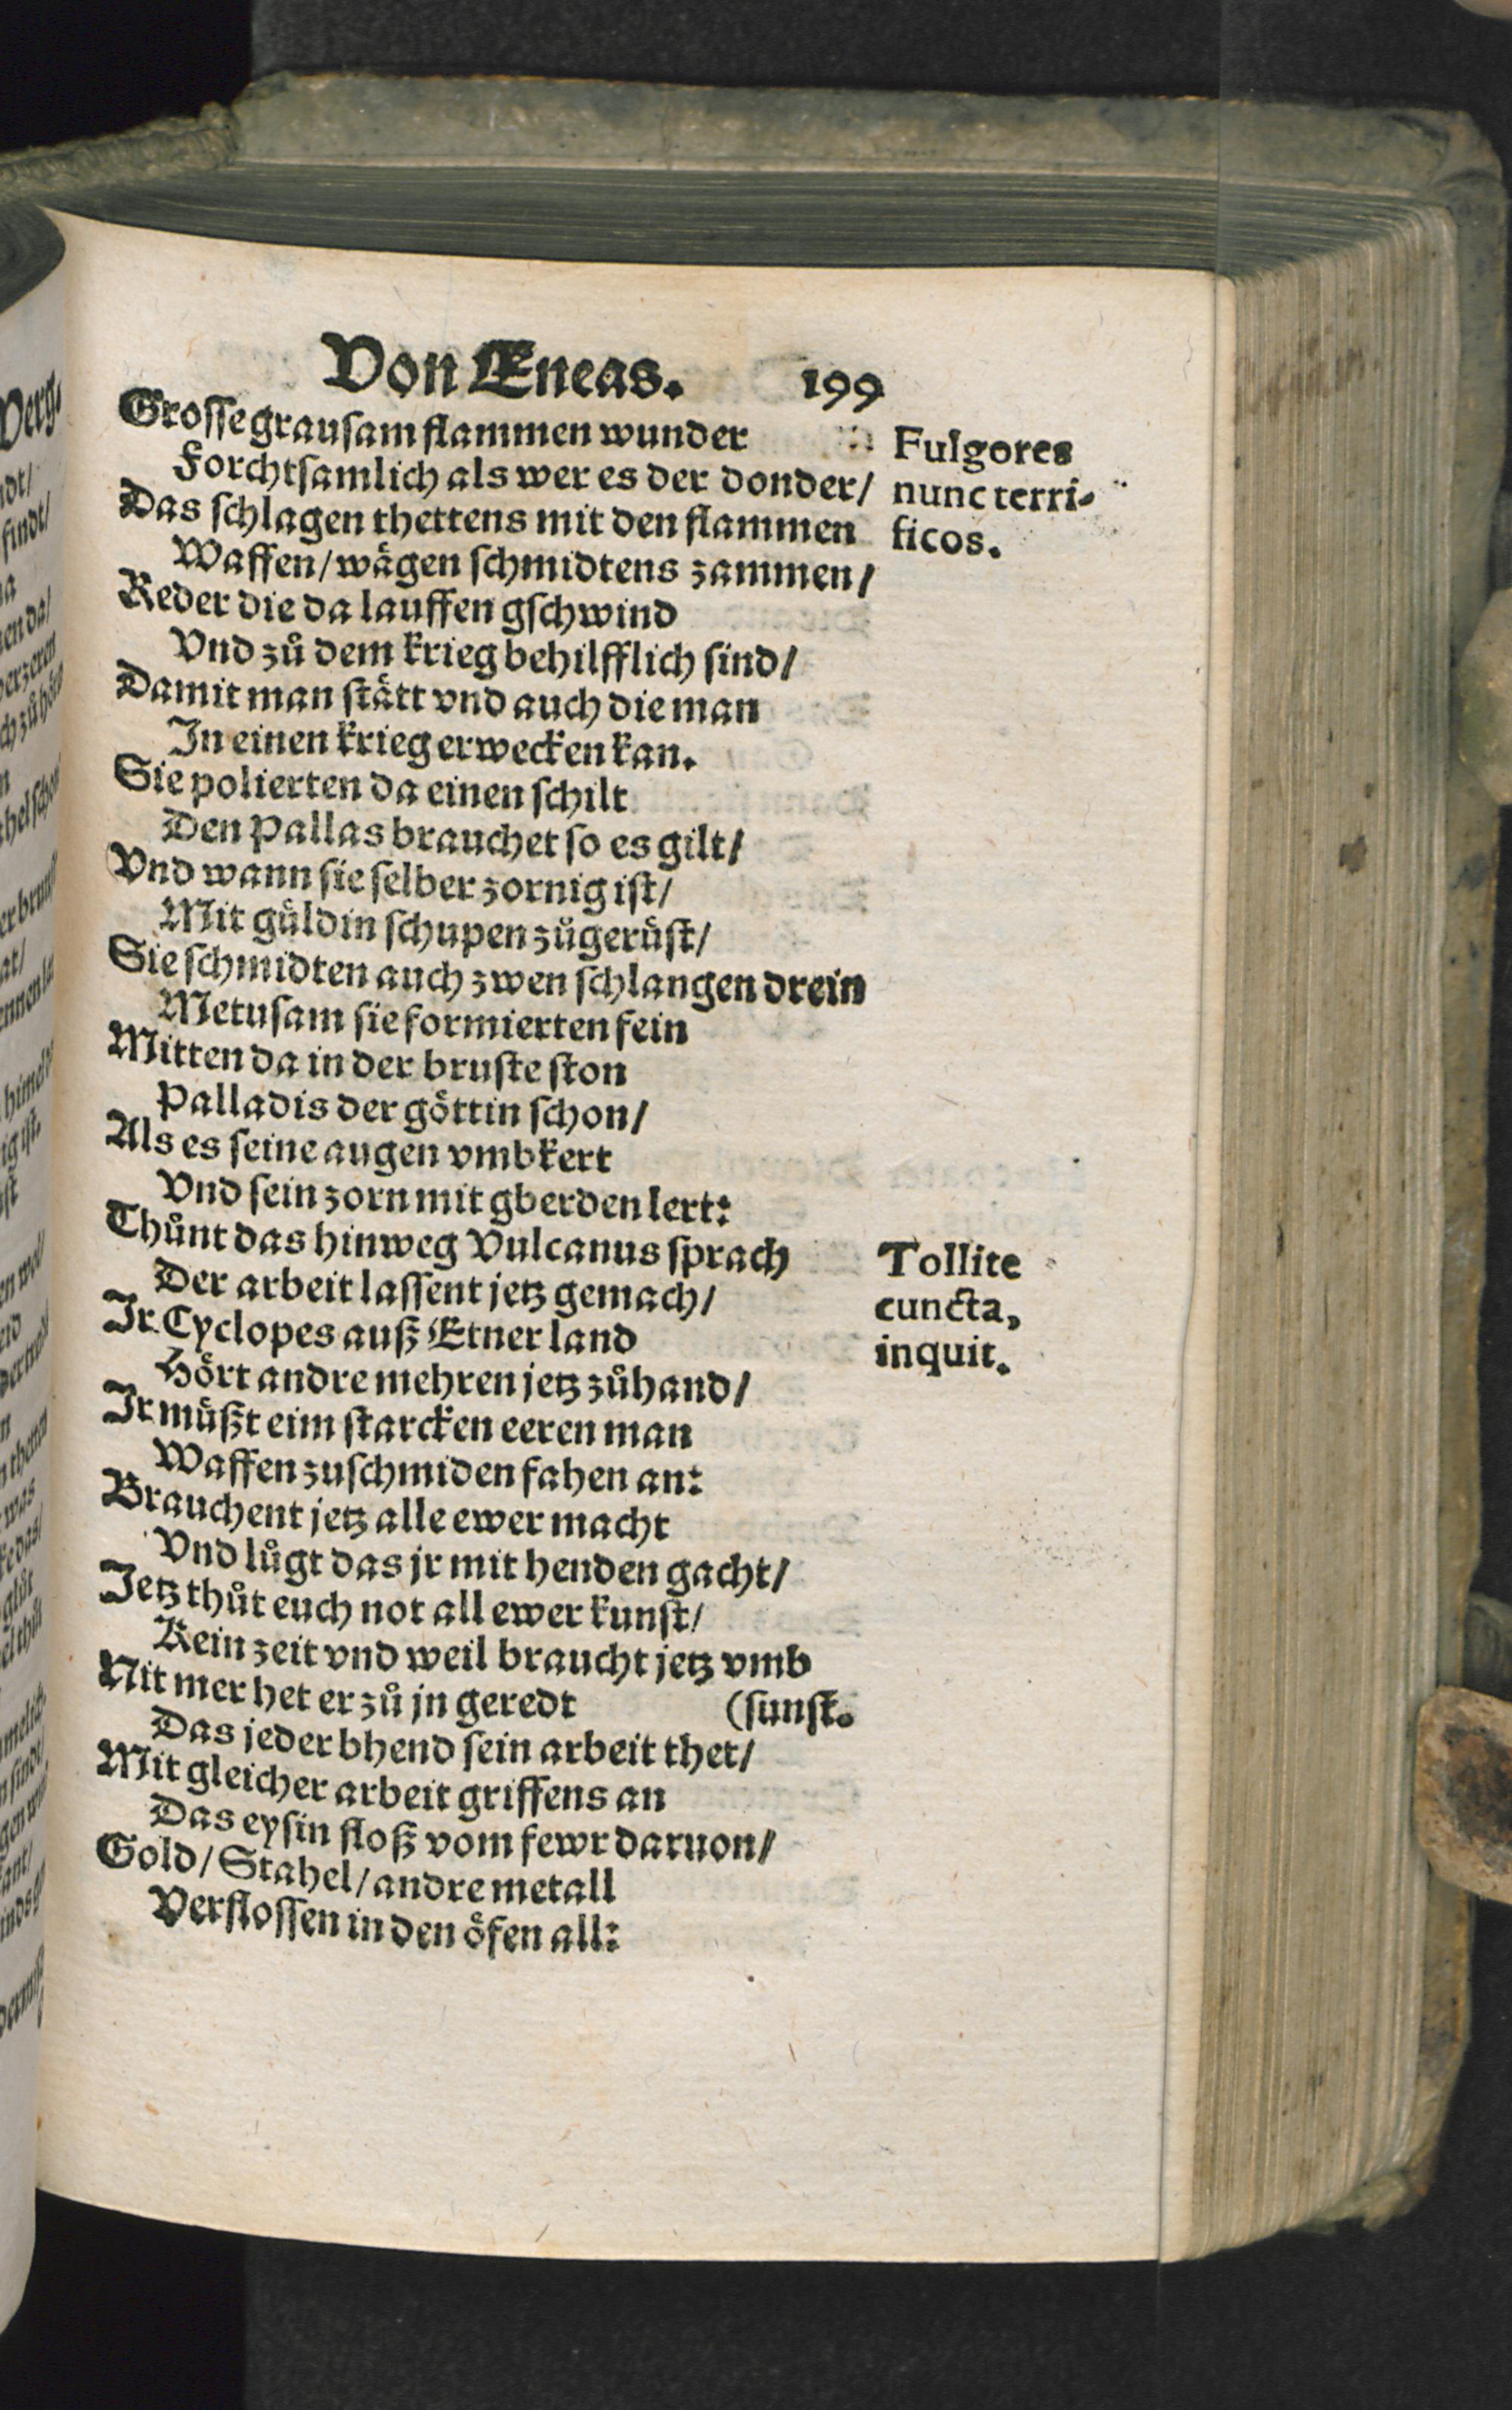 Von Æneas. 199
Grosse grausam flammen wunder
Forchtsamlich als wer es der donder/
Das schlagen thettens mit den flammen
Waffen/ wägen schmidtens zammen/
Reder die da lauffen gschwind
Vnd zů dem krieg behilfflich sind/
Damit man stätt vnd auch die man
In einen krieg erwecken kan.
Sie polierten da einen schilt
Den Pallas brauchet so es gilt/
Vnd wann sie selber zornig ist/
Mit güldin schupen zůgerüst/
Sie schmidten auch zwen schlangen drein
Metusam sie formierten fein
Mitten da in der bruste ston
Palladis der göttin schon/
Als es seine augen vmbkert
Vnd sein zorn mit gberden lert:
Thůnt das hinweg Vulcanus sprach
Der arbeit lassent jetz gemach/
Ir Cyclopes auß Etner land
Hört andre mehren jetz zůhand/
Ir müßt eim starcken eeren man
Waffen zuschmiden fahen an:
Brauchent jetz alle ewer macht
Vnd lůgt das jr mit henden gacht/
Jetz thůt euch not all ewer kunst/
Kein zeit vnd weil braucht jetz vmb
Nit mer het er zů jn geredt (sunst.
Das jeder bhend sein arbeit thet/
Mit gleicher arbeit griffens an
Das eysin floß vom fewr daruon/
Gold/ Stahel/ andre metall
Verflossen in den öfen all:
Fulgores
nunc terri-
ficos.
Tollite
cuncta,
inquit.